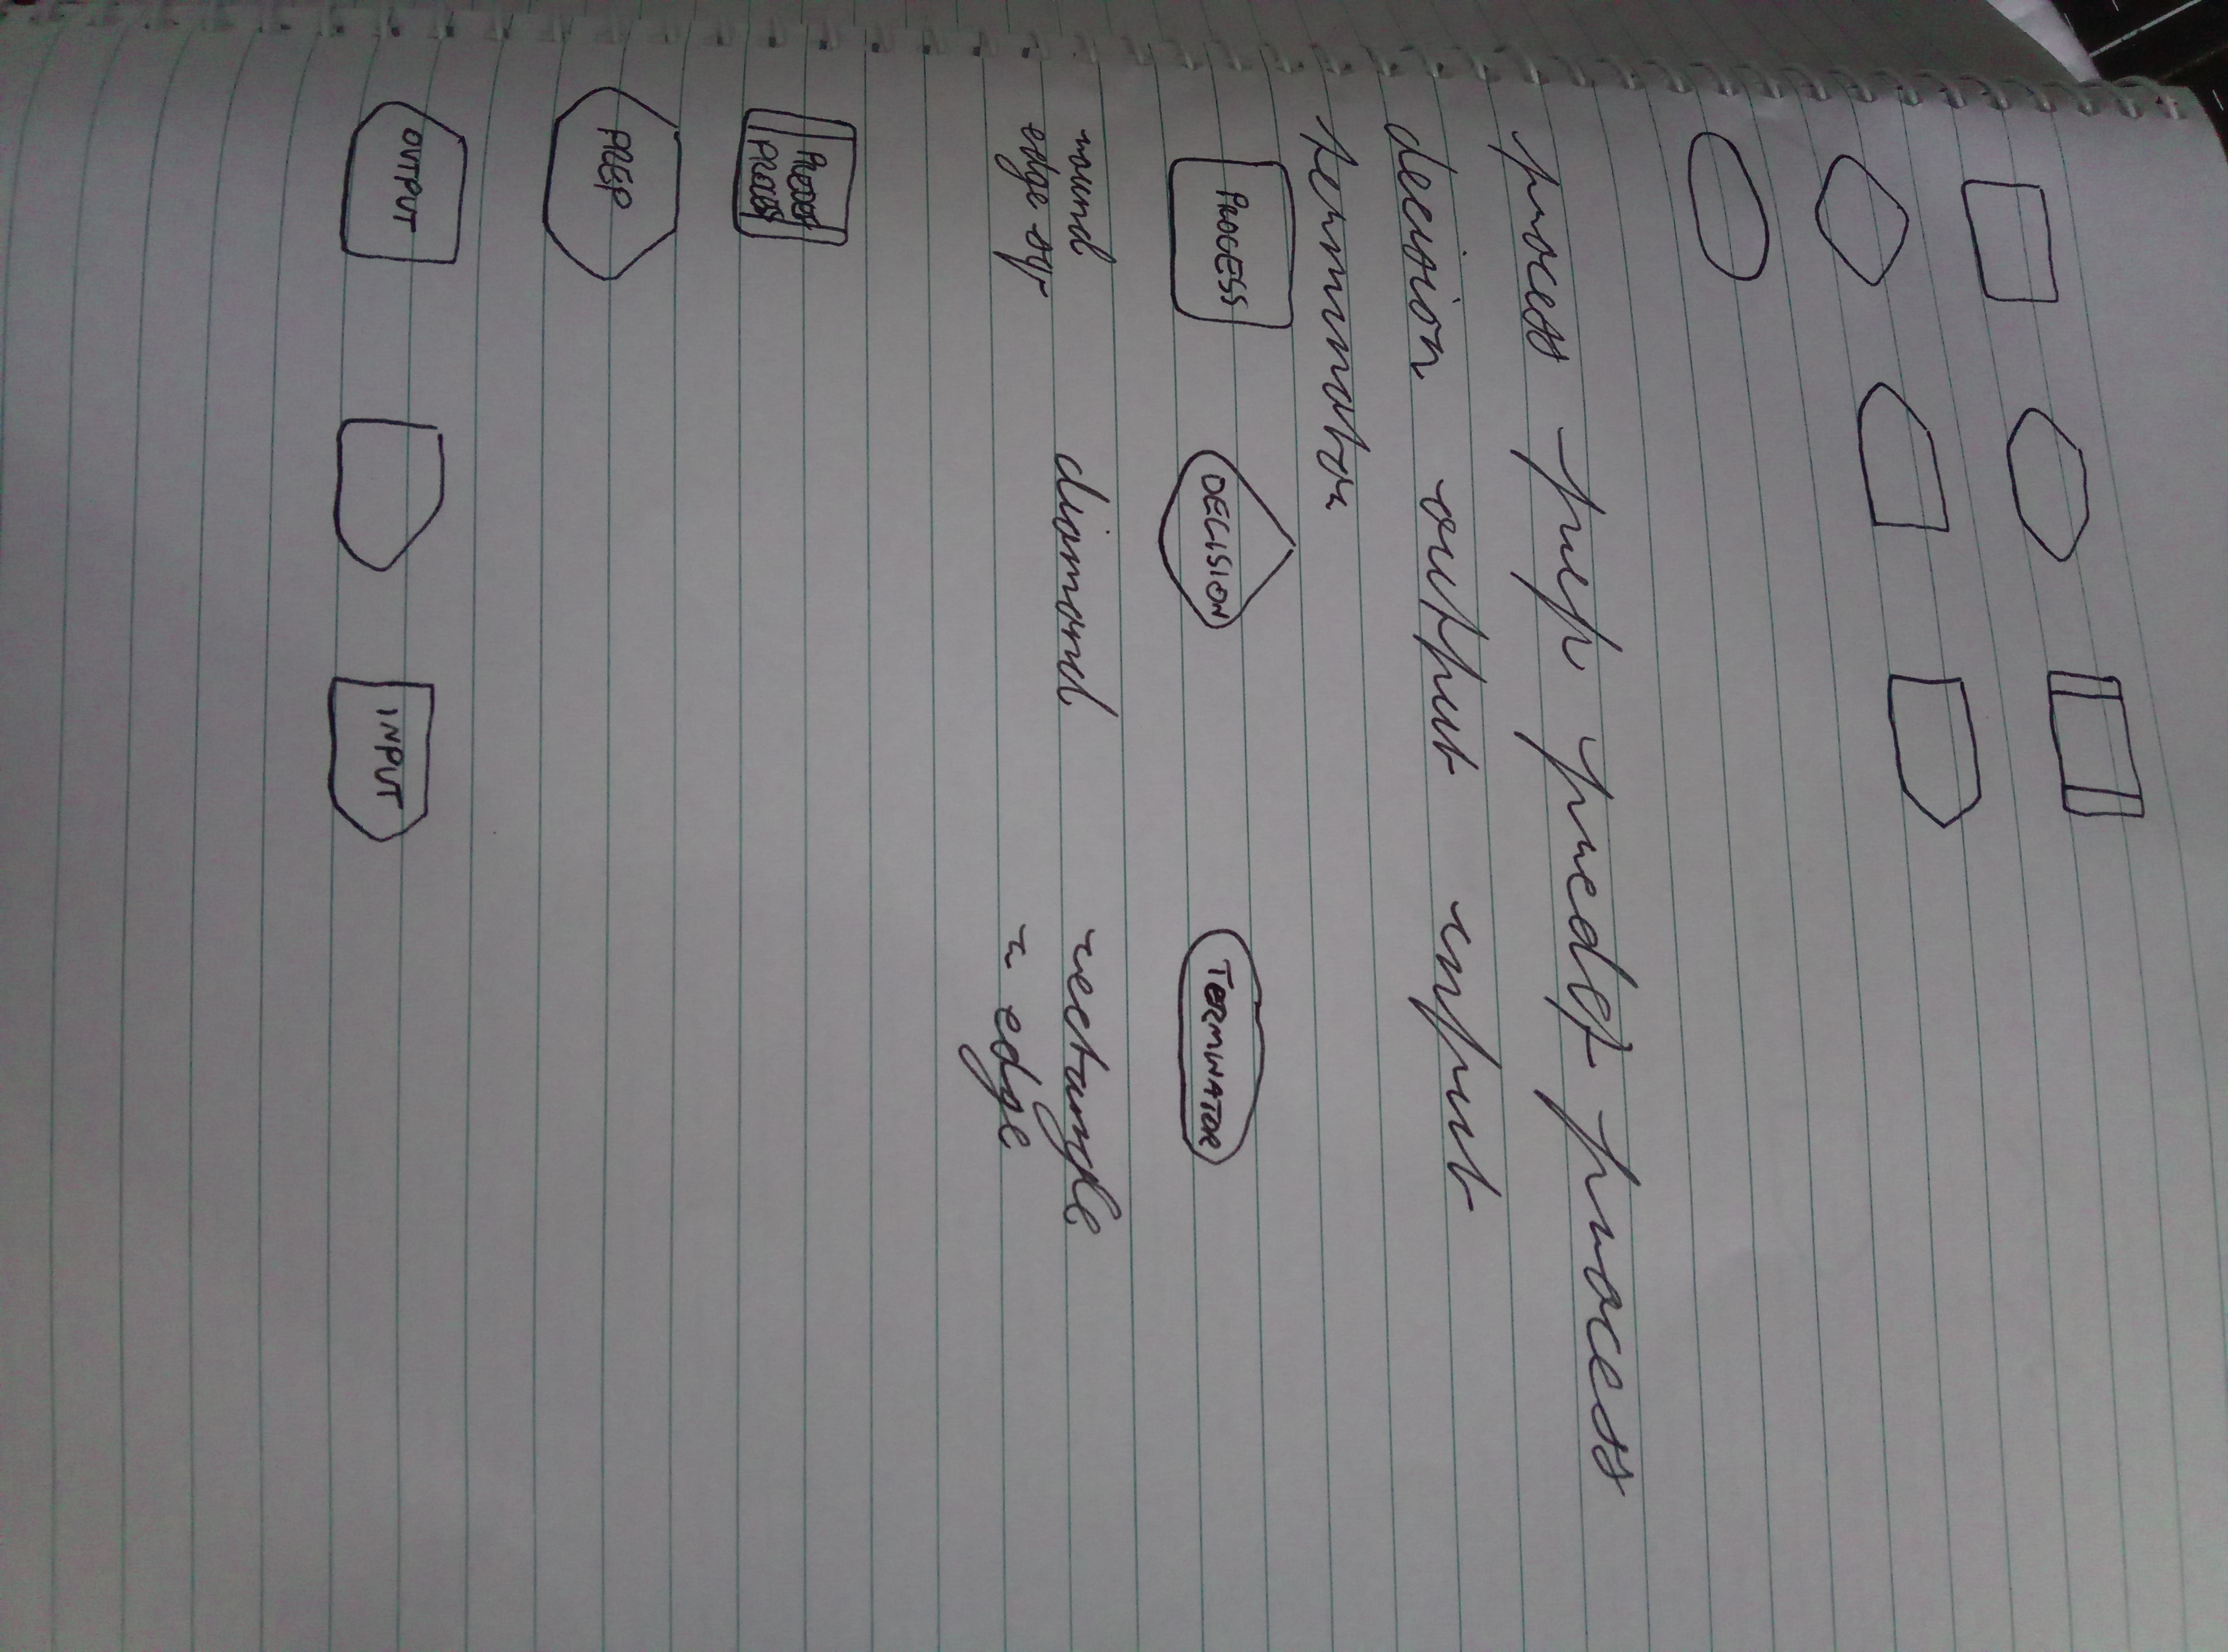 process prep predef process
decision output input
terminator
PROCESS DECISION TERMINATOR
round diamond rectangle
edge sqr r edge
PREDEF
PROCESS
PREP
OUTPUT INPUT